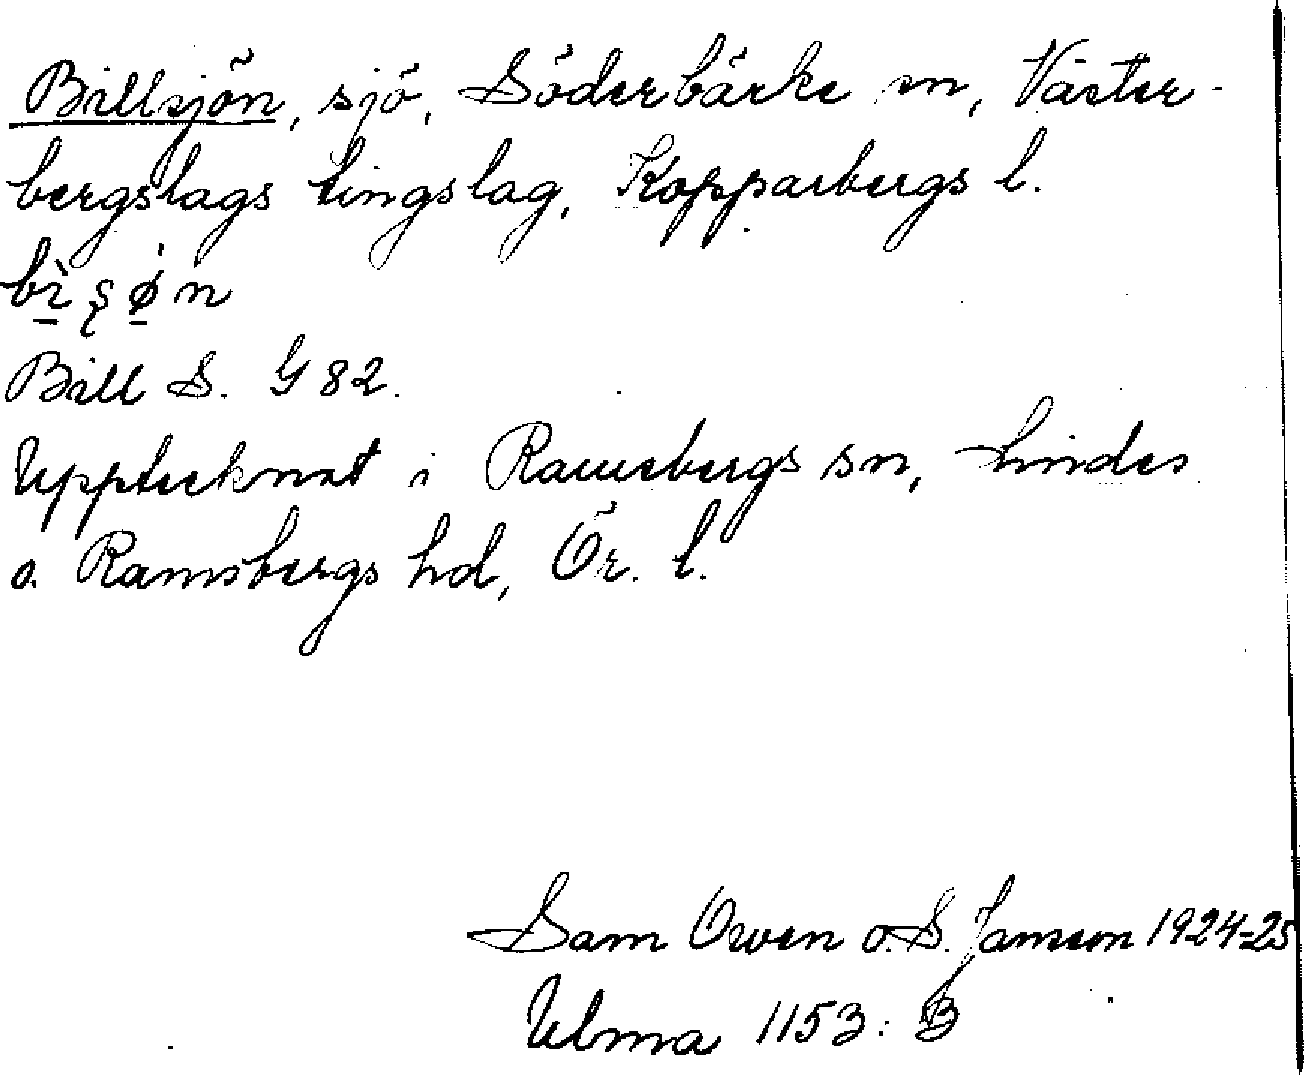 Billsjön, sjö, Söderbärke sn, Väster-
bergslags tingslag, Kopparbergs l.
bìʂø̀n
Bill S. G 82.
Upptecknat i Ramsbergs sn, Lindes
o. Ramsbergs hd, Ör. l.
Sam Owen o. S. Janson 1924-25
Ulma 1153: B